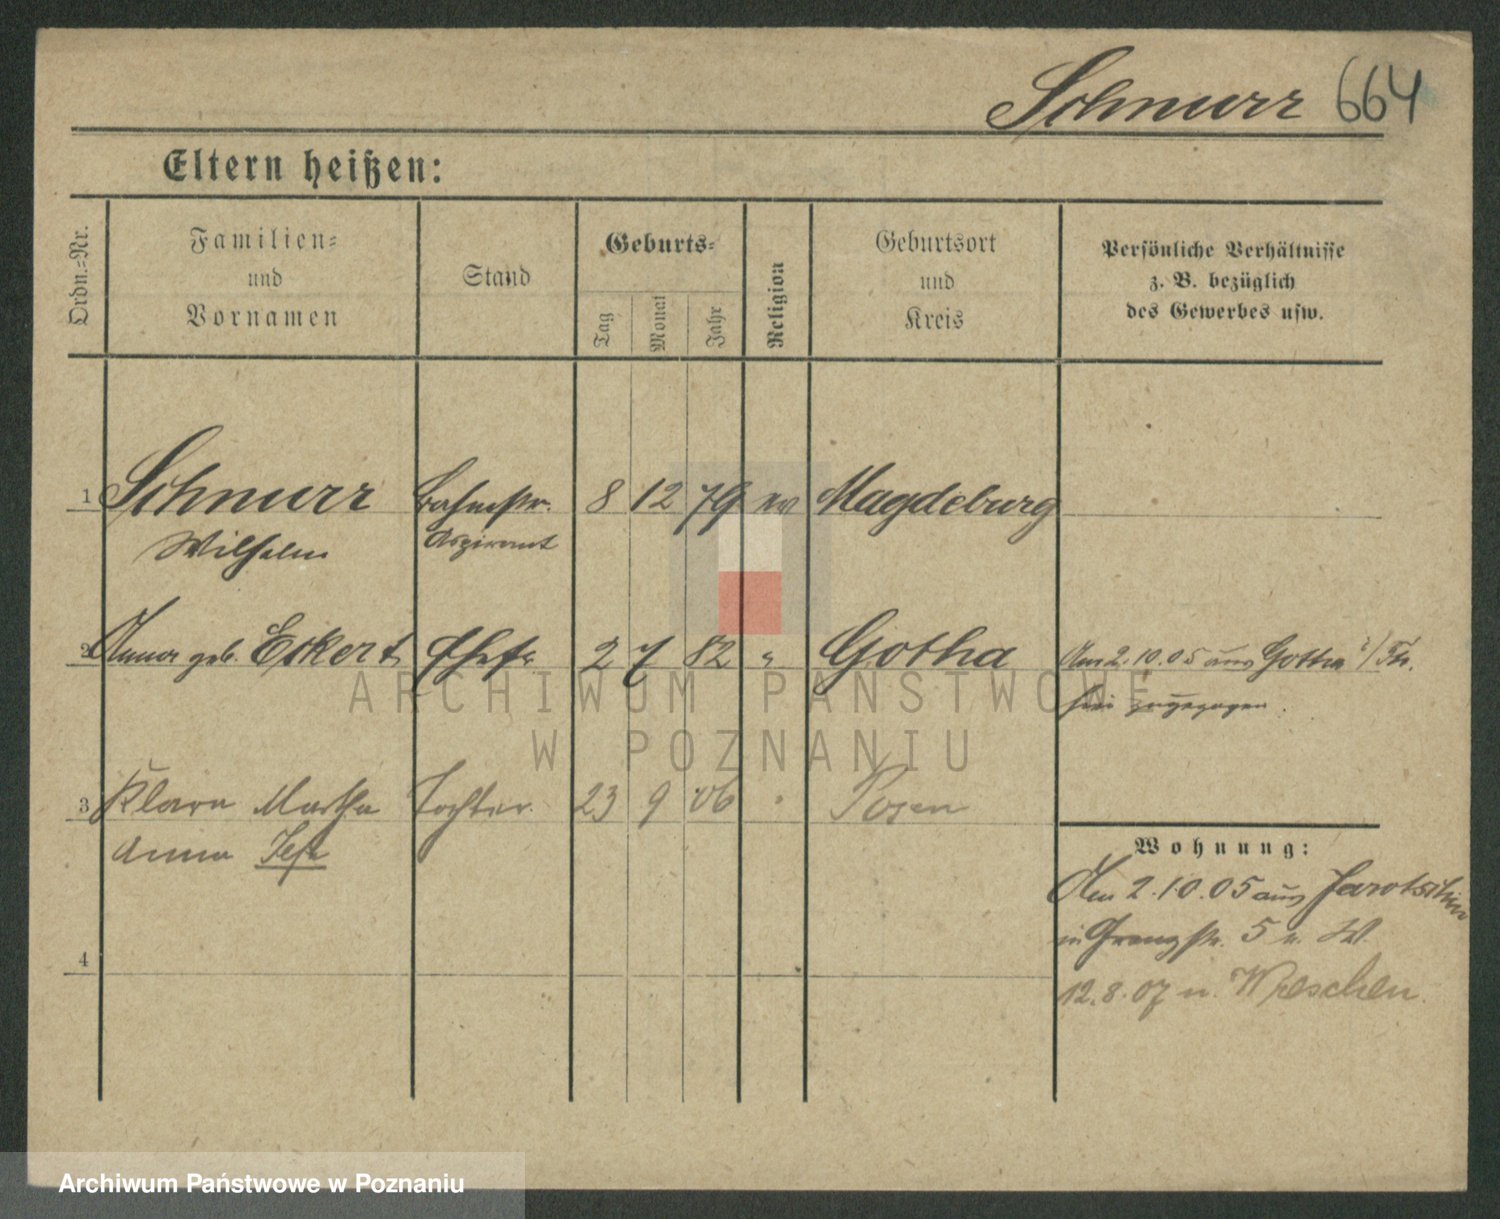 Schnurr 664
Eltern heißen:
Ordn.-Nr.
Familien-
und
Vornamen
Stand
Geburts-
Tag
Monat
Jahr
Religion
Geburtsort
und
Kreis
Persönliche Verhältnisse
z. B. bezüglich
des Gewerbes usw.
1 Schnurr 8 12 79 ev Magdeburg
Wilhelm Aspirant
2 Anna geb. Eckert Ehefr 2 7 82 " Gotha Am 2.10.05 aus Gotha i/Th.
hier zugezogen.
3 Klara Martha Tochter 23 9 06 " Posen
Anna
Wohnung:
Am 2.10.05 aus Jarotschin
in 5 u. W.
4
12.8.07 n. Wreschen.
ARCHIWUM PAŃSTWOWE
W POZNANIU
Archiwum Państwowe w Poznaniu